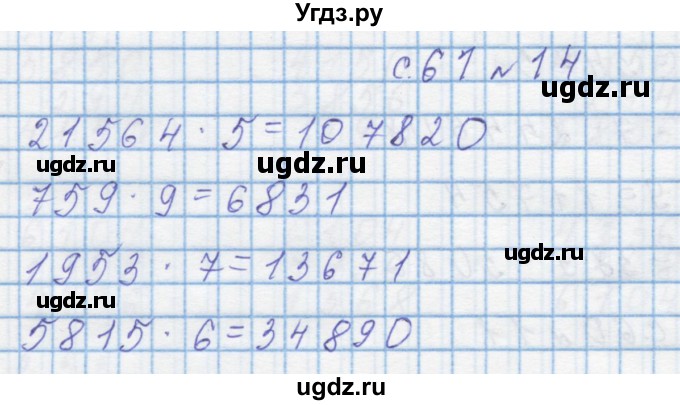 Угдз.ру
с. 61 № 14
ugdz.ru
21564 · 5 = 107820
ugdz.ru
ugdz.ru
759 · 9 = 6831
ugdz.ru
1953 · 7 = 13671
ugdz.ru
5815 · 6 = 34890
ugdz.ru
ugdz.ru